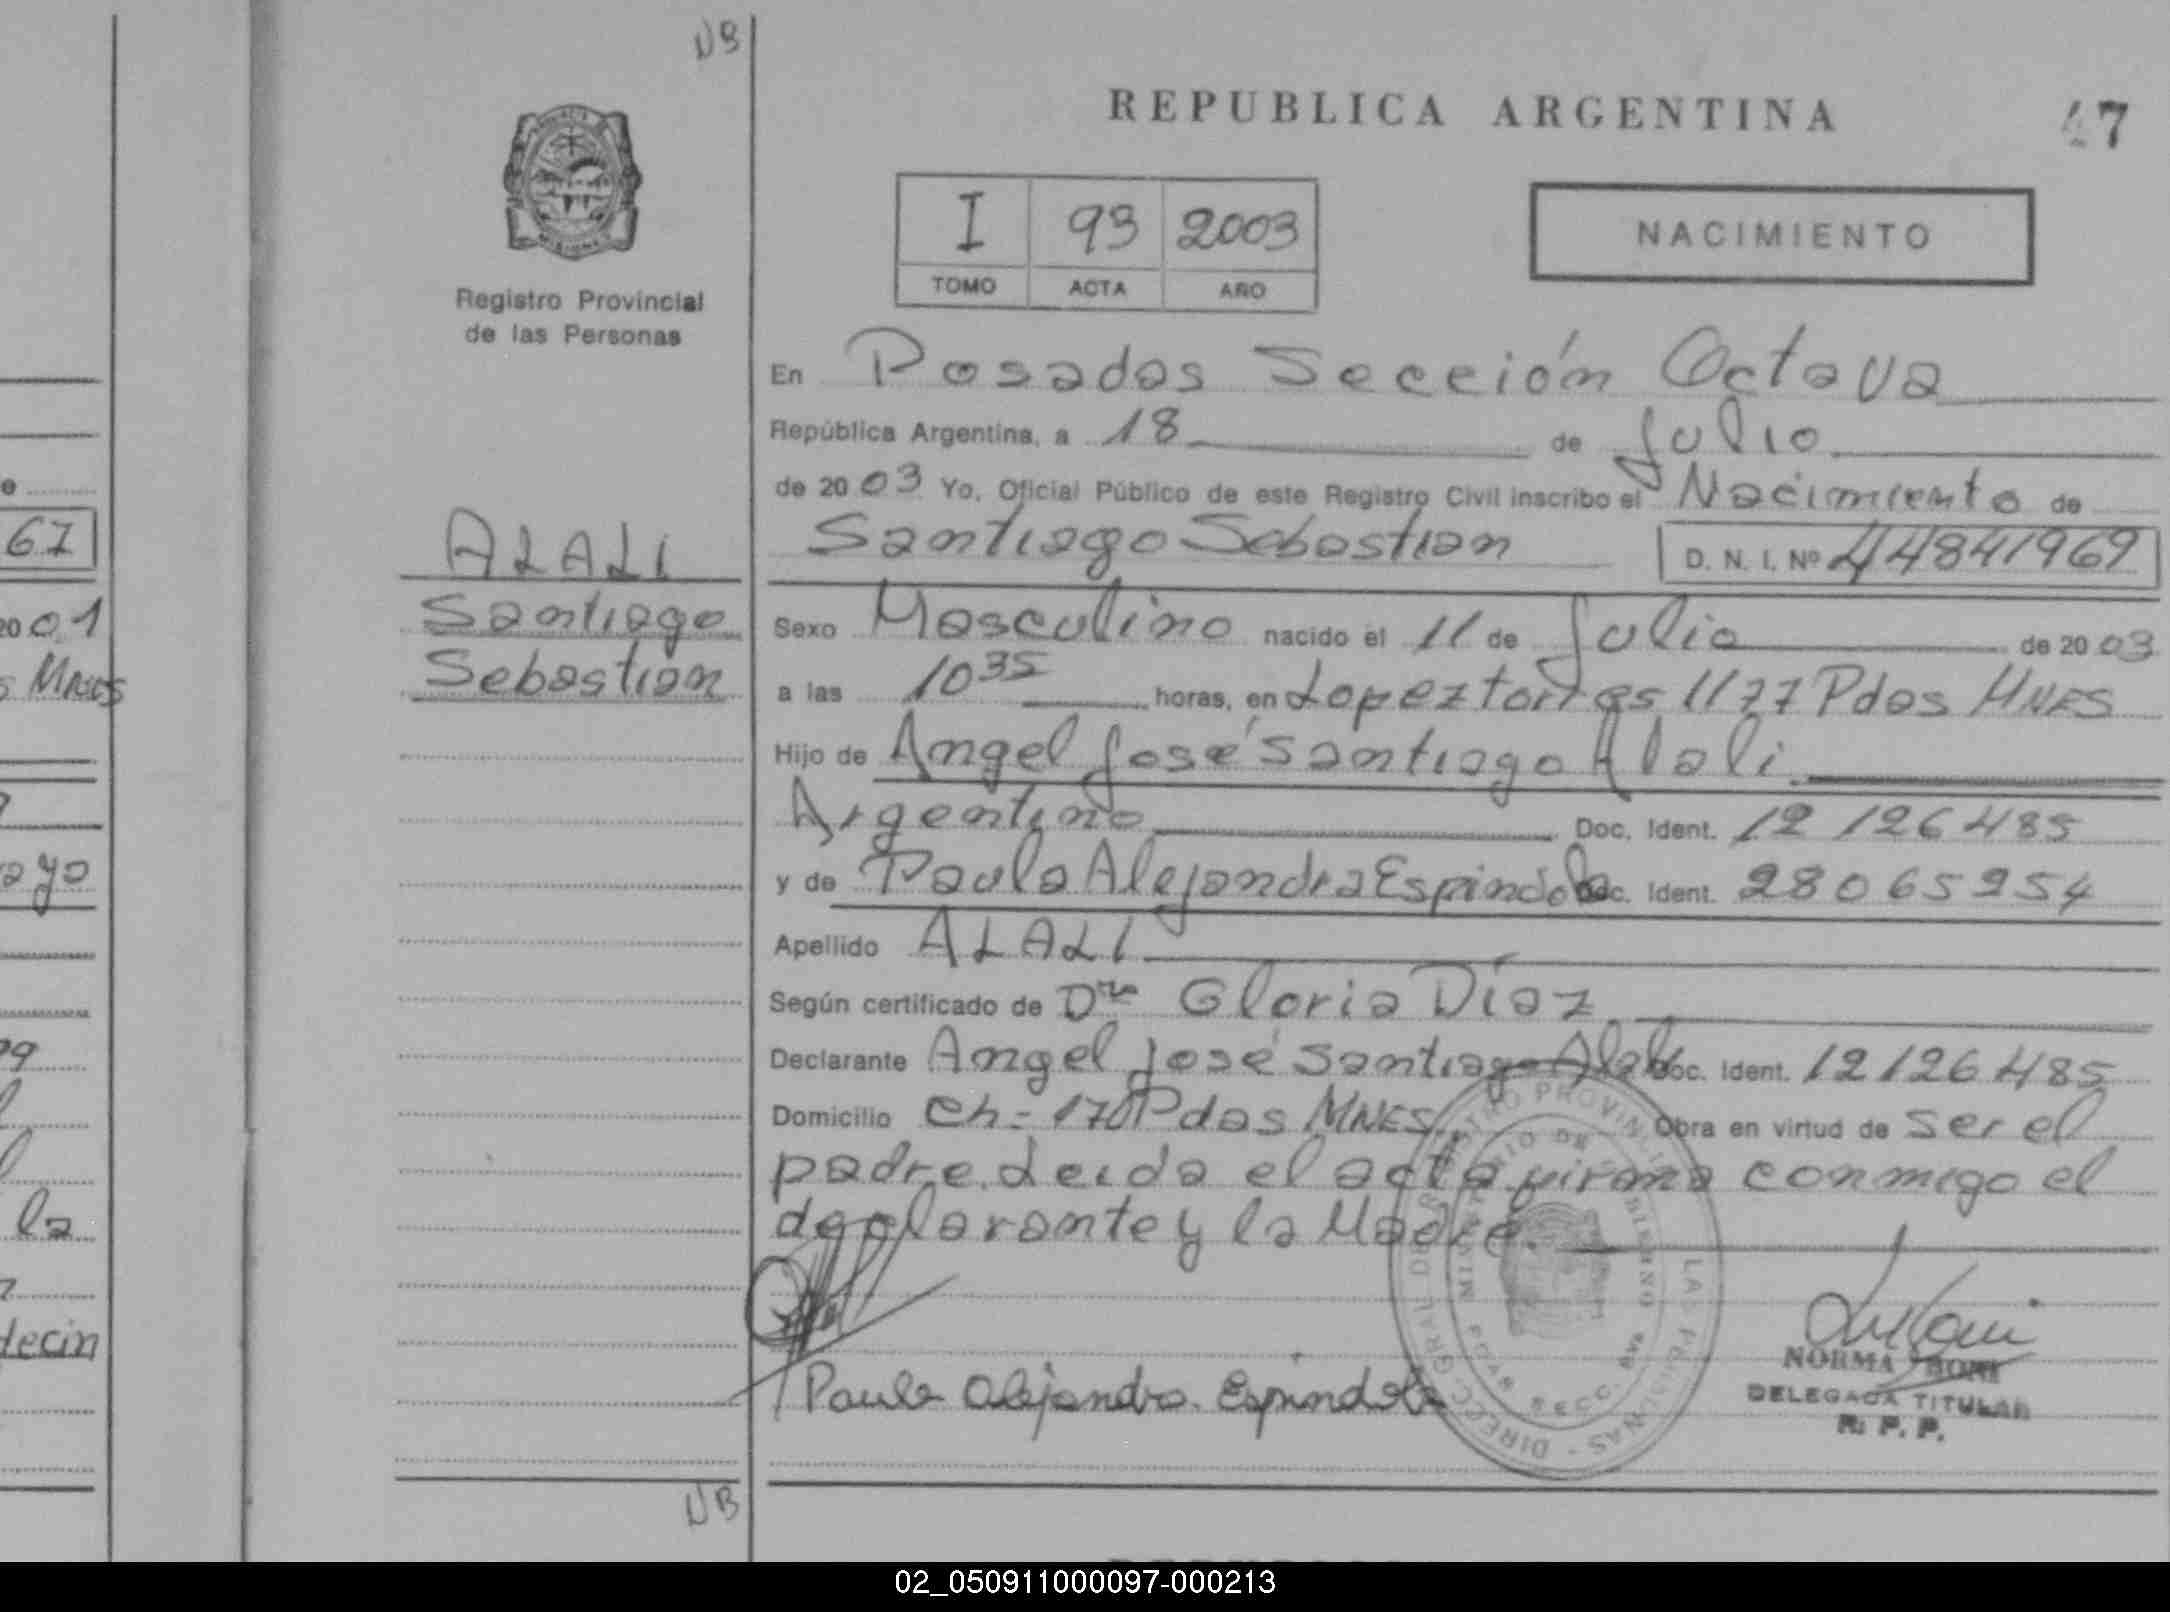 NB
REPUBLICA ARGENTINA
47
I 93 2003
TOMO ACTA AÑO
NACIMIENTO
Registro Provincial
de las Personas
ALALI
Santiago
Sebastian
En Posadas Sección Octava
República Argentina, a 18 de Julio
de 2003 Yo, Oficial Público de este Registro Civil inscribo el Nacimiento de
Santiago Sebastian D. N. I. Nº 44841969
Sexo Masculino nacido el 11 de Julio de 2003
a las 10 35 horas, en Lopez torres 1177 Pdas MNES
Hijo de Angel José Santiago Alali
Argentino Doc. Ident. 12 126485
y de Paula Alejandra Espindola Doc. Ident. 28065254
Apellido ALALI
Según certificado de Dra Gloria Díaz
Declarante Angel José Santiago Alali Doc. Ident. 12126485
Domicilio Ch = 170 Pdas MNES Obra en virtud de ser el
padre. Leida el acta firma conmigo el
declarante y la Madre.
Paula Alejandra Espindola
NORMA BONI
DELEGADA TITULAR
R. P. P.
NB
67
2001
MNES
ayo
la
decin
02_050911000097-000213